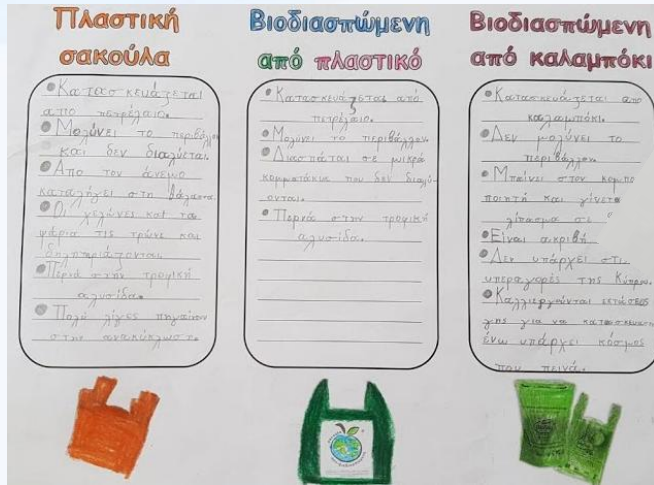 Πλαστική
σακούλα
• Κατασκευάζεται
από πετρέλαιο.
• Μολύνει το περιβάλλον
και δεν διαλύεται.
• Απο τον άνεμο
καταλήγει στη θάλασσα.
• Οι χελώνες και τα
ψάρια τις τρώνε και
δηλητηριάζονται.
• Περνά στην τροφική
αλυσίδα.
• Πολύ λίγες πηγαίνουν
στην ανακύκλωση.
Βιοδιασπώμενη
από πλαστικό
• Κατασκευάζεται από
πετρέλαιο.
• Μολύνει το περιβάλλον.
• Διασπάται σε μικρά
κομματάκια που δεν διαλύ-
ονται.
• Περνά στην τροφική
αλυσίδα.
Βιοδιασπώμενη
από καλαμπόκι
• Κατασκευάζεται απο
καλαμπόκι.
• Δεν μολύνει το
περιβάλλον.
• Μπαίνει στον κομπο
ποιητή και γίνετε
λίπασμα σε
• Είναι ακριβή
• Δεν υπάρχει στι
υπεραγορές της Κύπρου.
• Καλλιεργούνται εκτάσεις
γης για να κατασκευαστεί
ένω υπάρχει κόσμος
που πεινά.